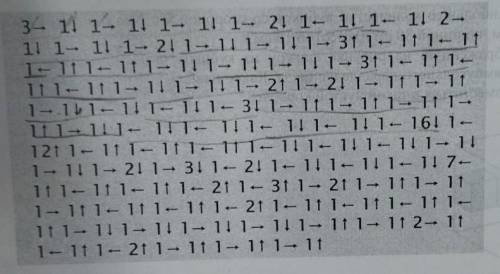 3→ 1↓ 1→ 1↓ 1→ 1↓ 1→ 2↓ 1← 1↓ 1← 1↓ 2→
1↓ 1→ 1↓ 1→ 2↓ 1→ 1↓ 1→ 1↓ 1→ 3↑ 1← 1↑ 1← 1↑
1← 1↑ 1← 1↑ 1→ 1↓ 1→ 1↓ 1→ 1↓ 1→ 3↑ 1← 1↑ 1←
1↑ 1← 1↑ 1→ 1↓ 1→ 1↓ 1→ 2↑ 1→ 2↓ 1→ 1↑ 1→ 1↑
1→ 1↓ 1← 1↓ 1← 1↓ 1← 3↓ 1→ 1↑ 1→ 1↑ 1→ 1↑ 1→
1↑ 1→ 1↓ 1← 1↓ 1← 1↓ 1← 1↓ 1← 1↓ 1← 16↓ 1←
12↑ 1← 1↑ 1← 1↑ 1← 1↑ 1← 1↓ 1← 1↓ 1← 1↓ 1→ 1↓
1→ 1↓ 1→ 2↓ 1→ 3↓ 1← 2↓ 1← 1↓ 1← 1↓ 1← 1↓ 7←
1↑ 1← 1↑ 1← 1↑ 1← 2↑ 1← 3↑ 1→ 2↑ 1→ 1↑ 1→ 1↑
1→ 1↑ 1← 1↑ 1← 1↑ 1← 2↑ 1← 1↑ 1← 1↑ 1← 1↑ 1←
1↑ 1→ 1↓ 1→ 1↓ 1→ 1↓ 1→ 1↓ 1→ 1↑ 1→ 1↑ 2→ 1↑
1← 1↑ 1← 2↑ 1→ 1↑ 1→ 1↑ 1→ 1↑